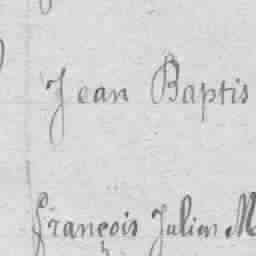 Jean Baptis
François Julien M